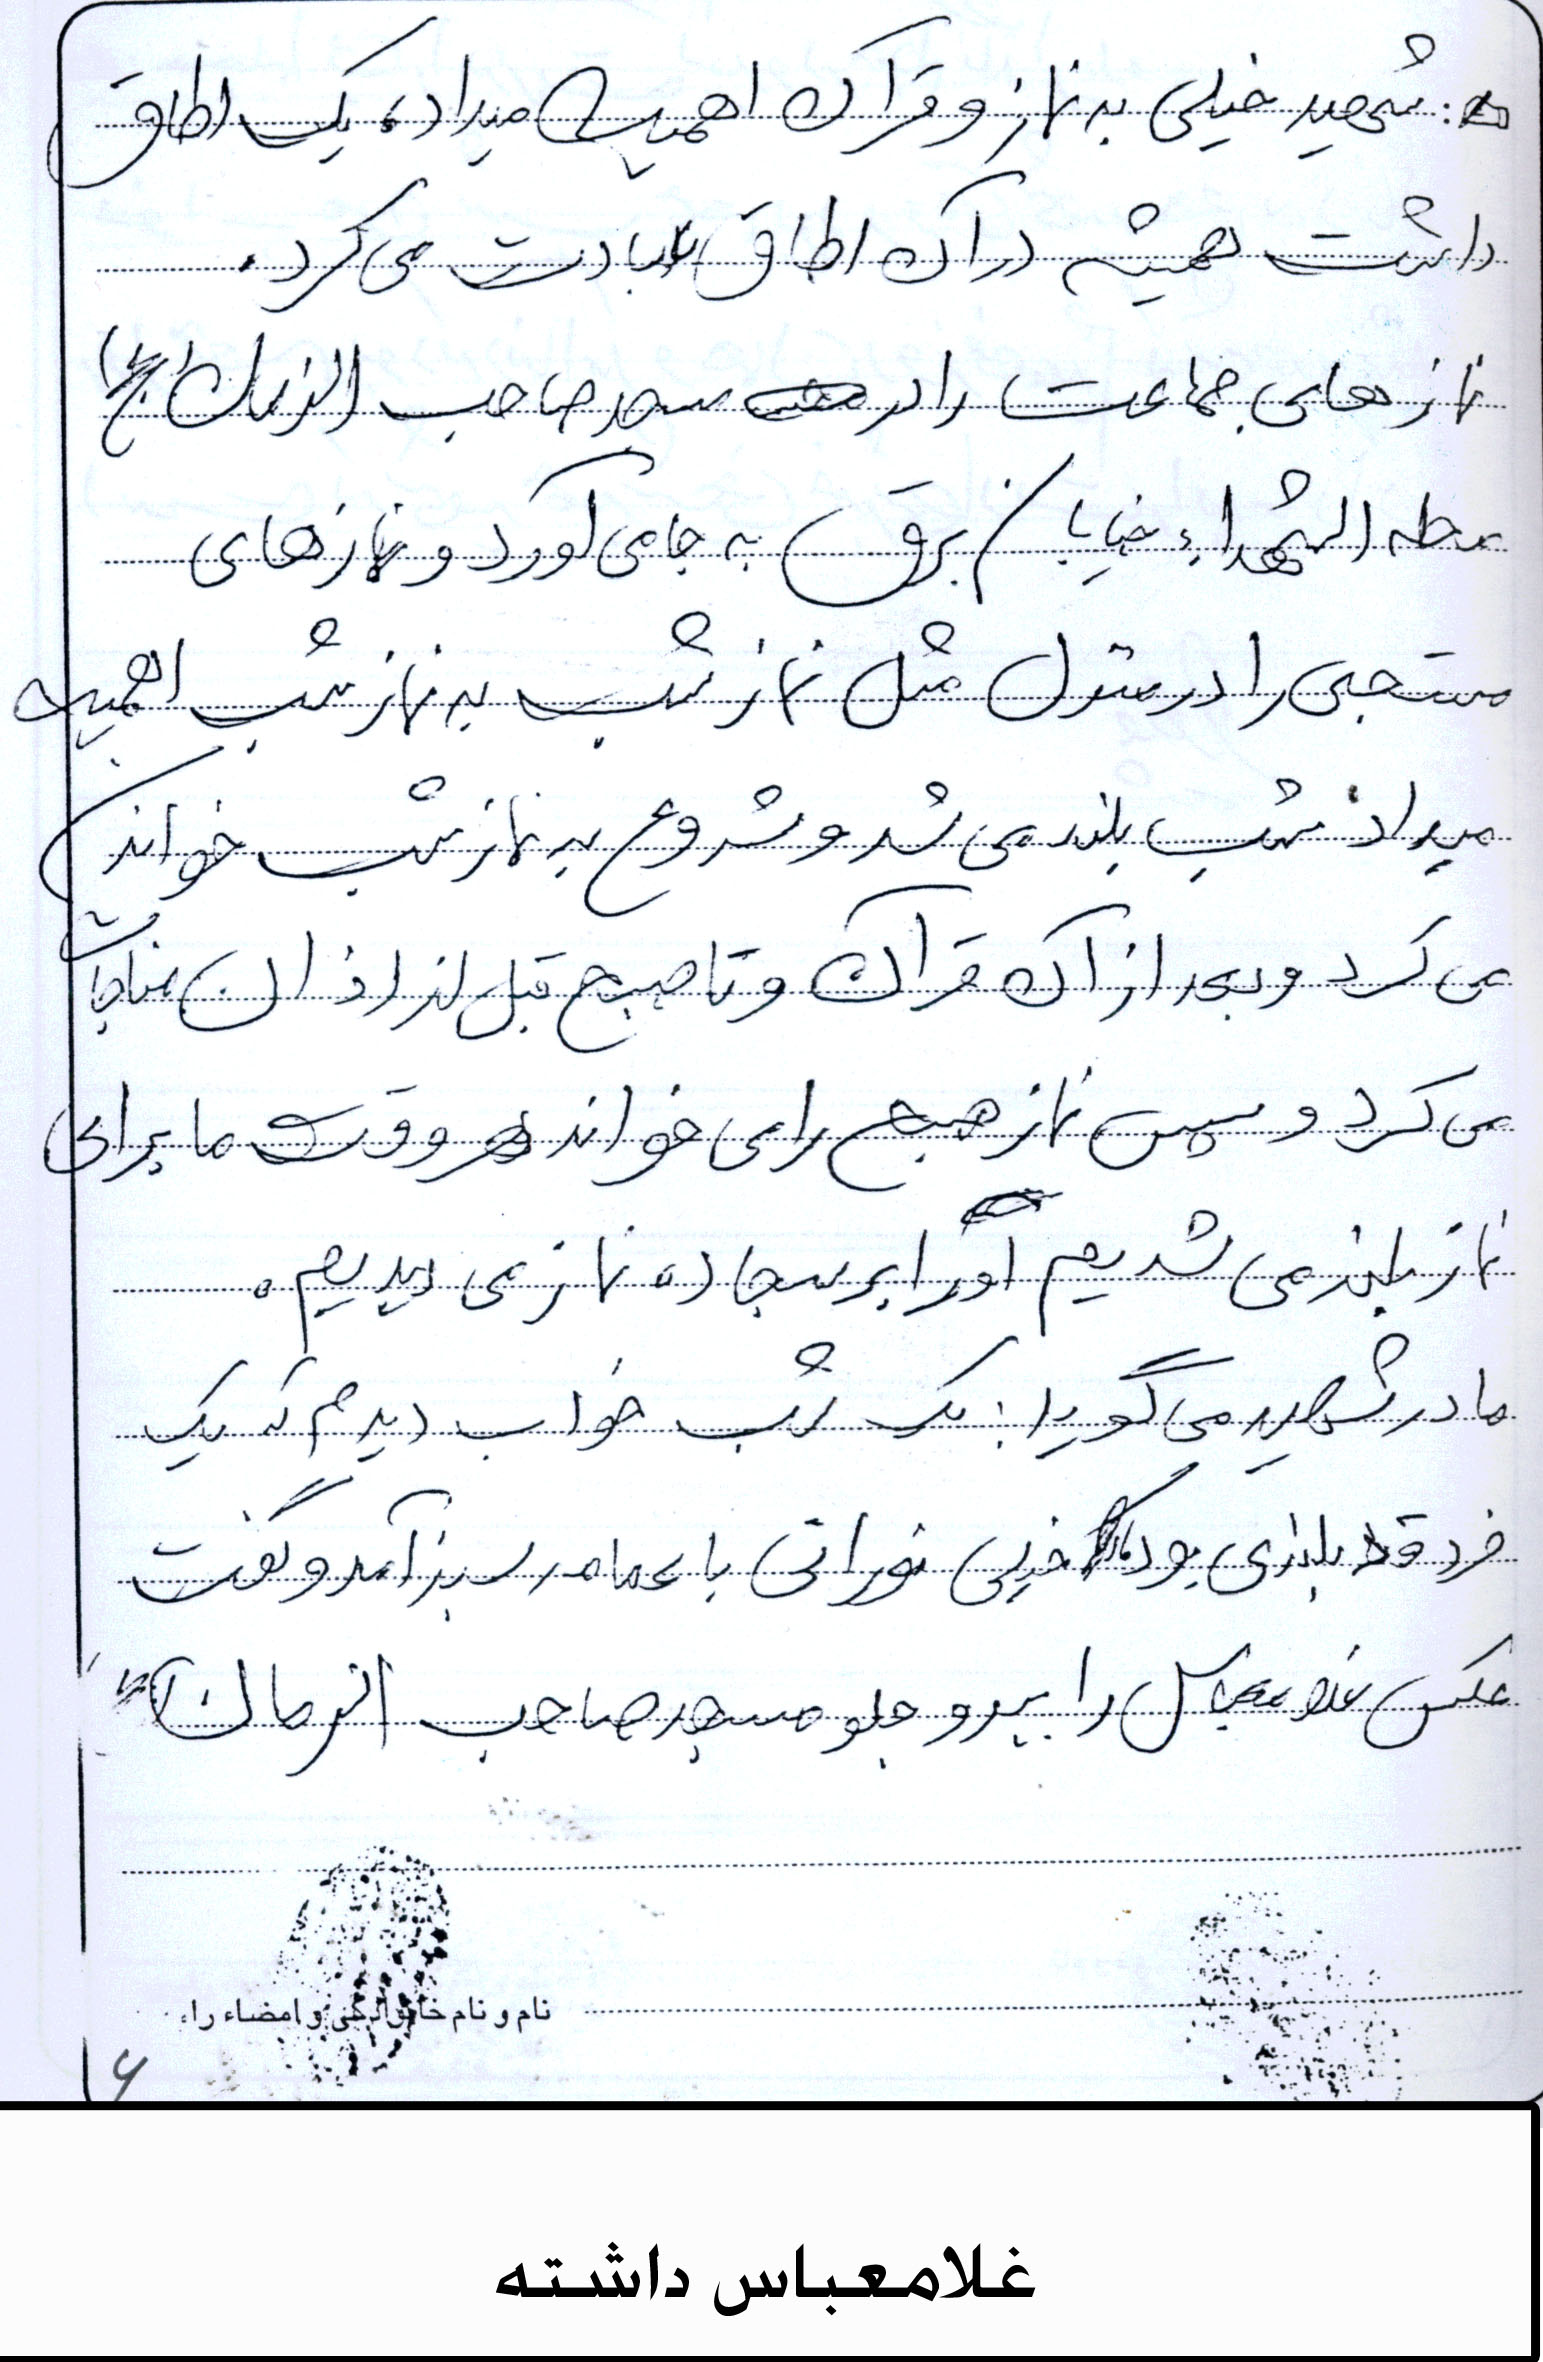 ج: شهید خیلی به نماز و قرآن اهمیت میداد، یک اطاق
داشت همیشه در آن اطاق عبادت می کرد.
نمازهای جماعت را در مسجد صاحب الزمان (عج)
محله الشهداء خیابان برق به جا می آورد و نمازهای
مستحبی را در منزل مثل نماز شب به نماز شب اهمیت
میداد شب بلند می شد و شروع به نماز شب خواندن
می کرد و بعد از آن قرآن و تا صبح قبل از اذان مناجات
می کرد و سپس نماز صبح را می خواند هر وقت ما برای
نماز بلند می شدیم او را بر سجاده نماز می دیدیم.
مادر شهید می گوید: یک شب خواب دیدم که یک
فرد قد بلندی بود خیلی نورانی با عمامه سبز آمد و گفت
عکس غلامعباس را ببرو جلو مسجد صاحب الزمان
نام و نام خانوادگی و امضاء راء
۶
غلامعباس داشته